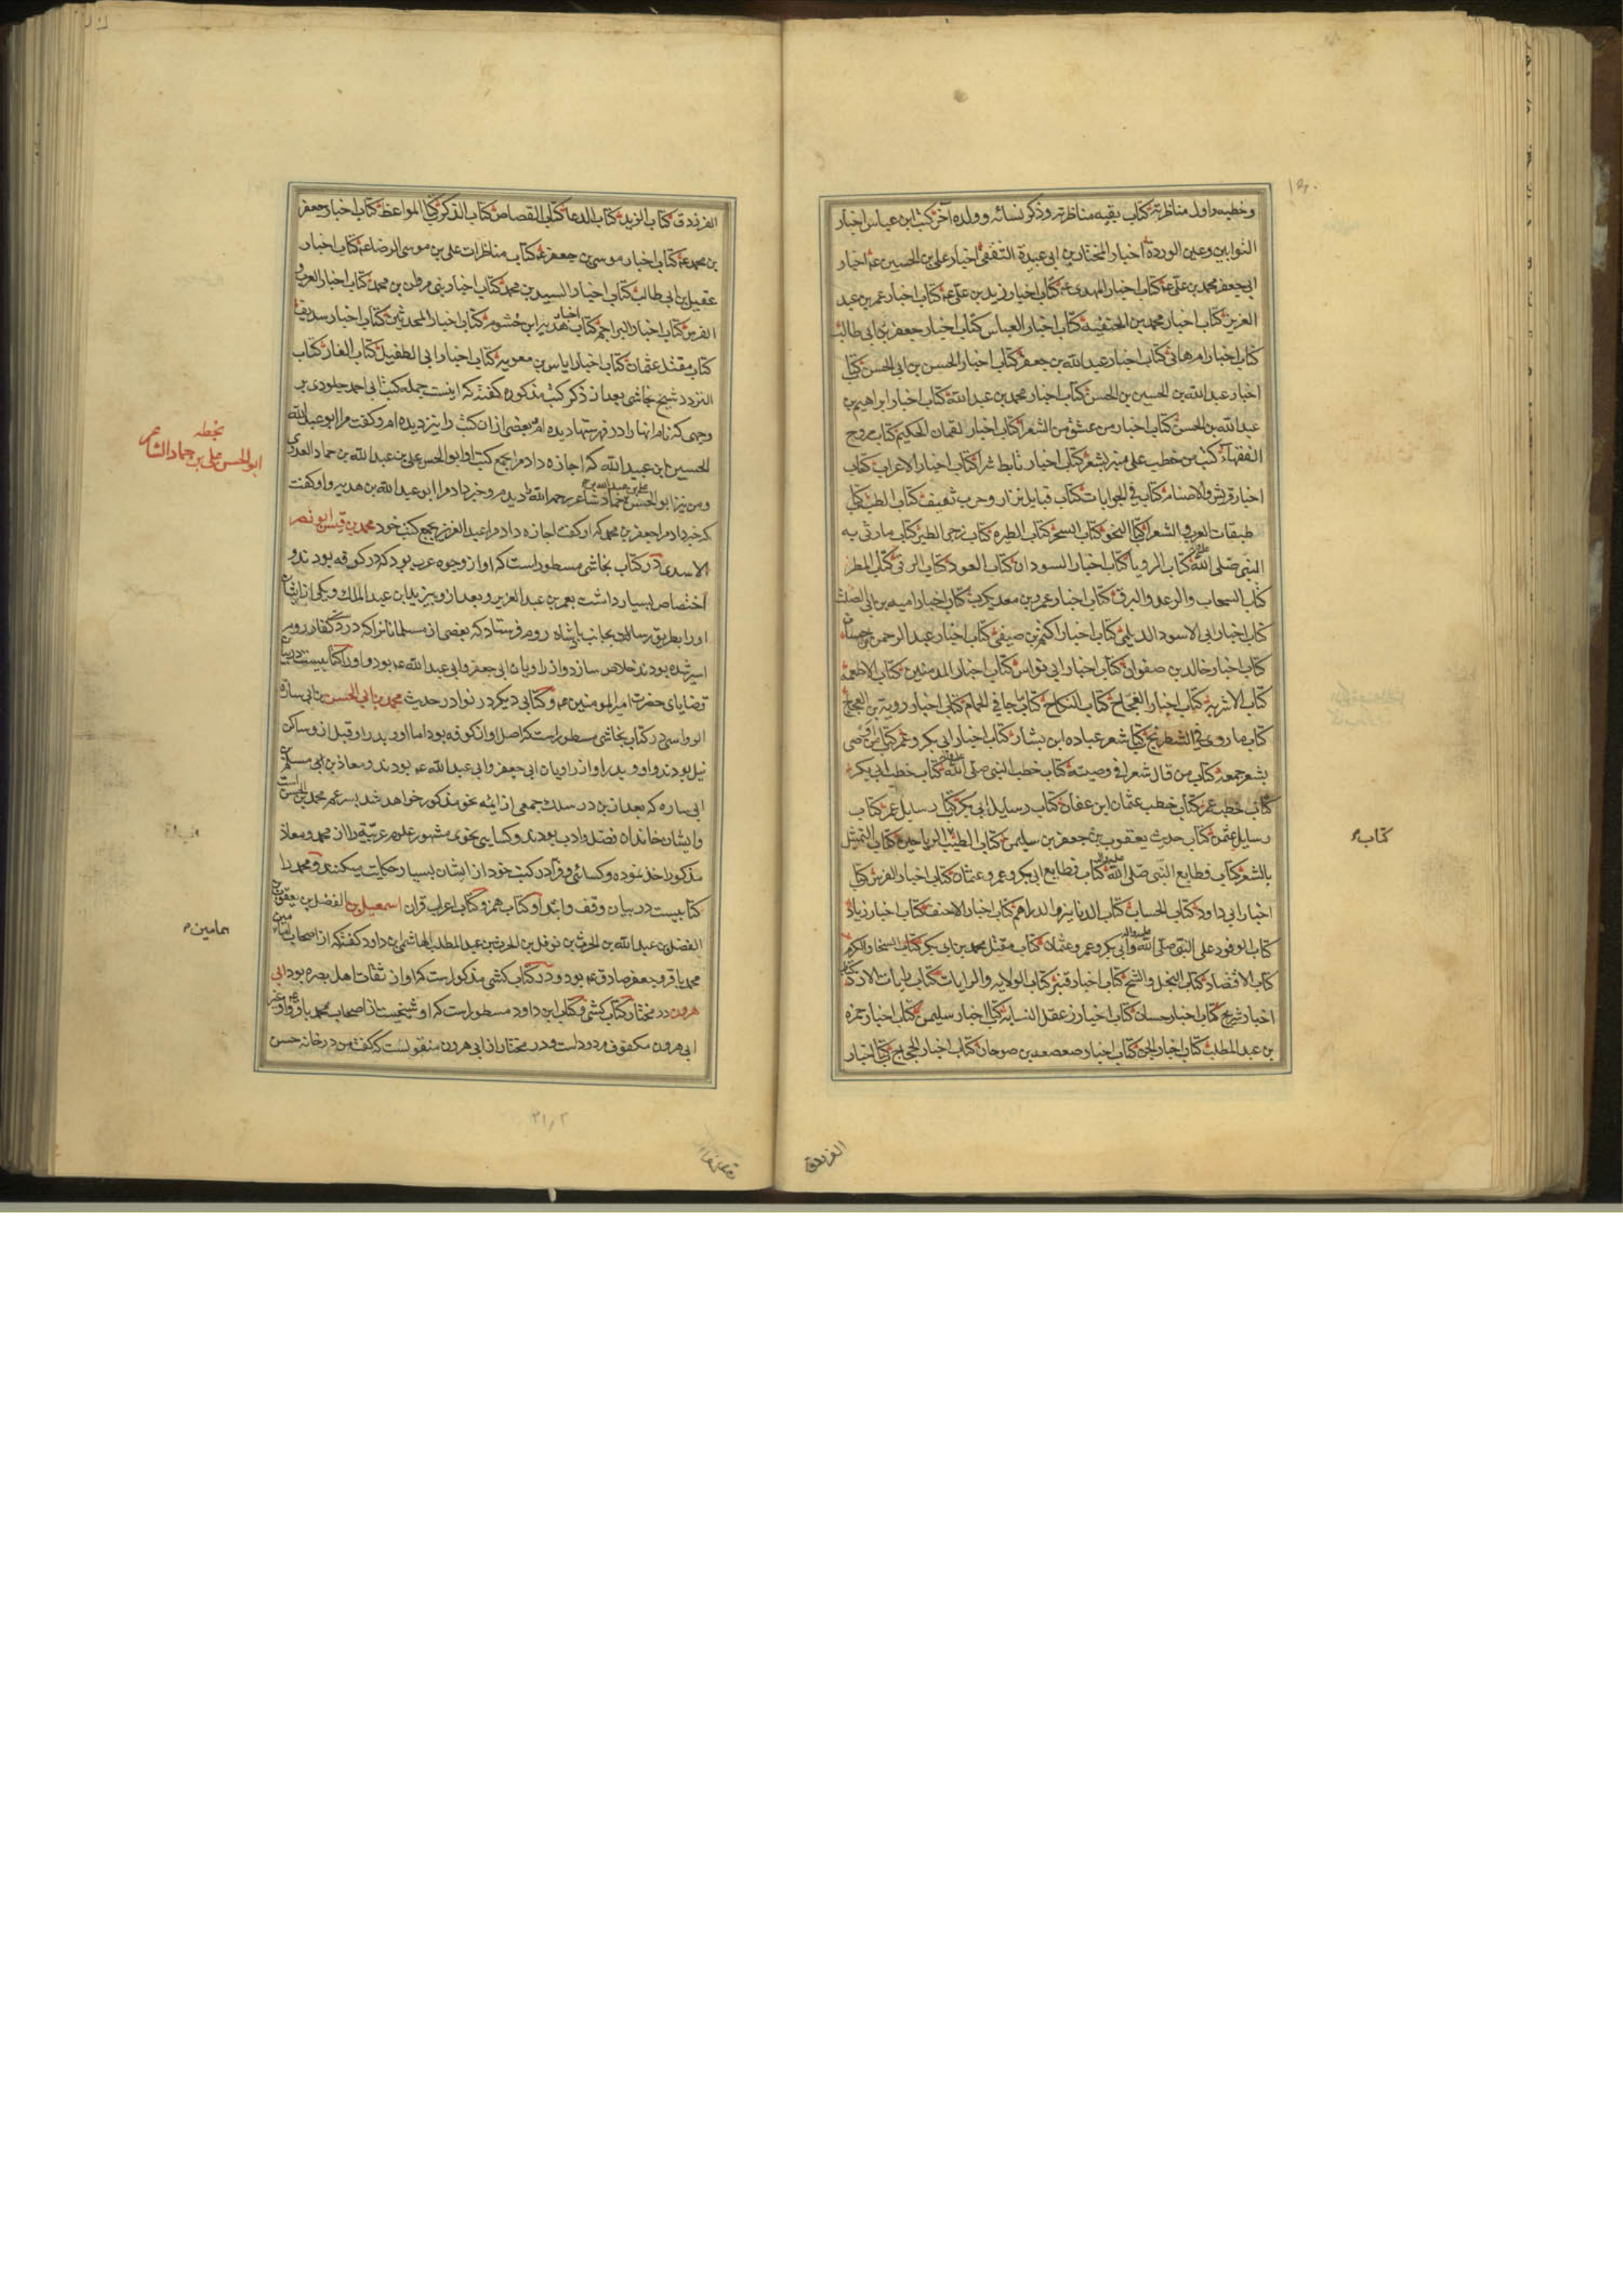 وخطبه واول مناظرته کتاب بقیه مناظرته وذکر نسائه وولده آخر کتب ابن عباس اخبار
التوابین وعین الوردة اخبار المختار بن ابی عبیدة الثقفی اخبار علی بن الحسین ع اخبار
ابی جعفر محمد بن علی ع کتاب اخبار المهدی ع کتاب اخبار زید بن علی ع کتاب اخبار عمر بن عبد
العزیز کتاب اخبار محمد بن الحنفیة کتاب اخبار العباس کتاب اخبار جعفر بن ابی طالب
کتاب اخبار ام هانی کتاب اخبار عبد الله بن جعفر کتاب اخبار الحسن بن ابی الحسن کتاب
اخبار عبد الله بن الحسین بن الحسن کتاب اخبار محمد بن عبد الله کتاب اخبار ابراهیم بن
عبد الله بن الحسن کتاب اخبار من عشق من الشعرا کتاب اخبار لقمان الحکیم کتاب مروج
الفقهاء کتاب من خطب علی منبر بشعر کتاب اخبار تابط شرا کتاب اخبار الاعراب کتاب
اخبار قریش والاصنام کتاب فی الجوابات کتاب قبایل نزار وحرب ثقیف کتاب الطب کتاب
طبقات العرب والشعرا کتاب النحو کتاب السحر کتاب الطیره کتاب زجر الطیر کتاب مارثی به
النبی صلی الله علیه کتاب الرویا کتاب اخبار السودان کتاب العود کتاب الرقی کتاب المطر
کتاب السحاب والرعد والبرق کتاب اخبار عمرو بن معدیکرب کتاب اخبار امیه بن ابی الصلت
کتاب اخبار ابی الاسود الدیلی کتاب اخبار اکثم بن صیفی کتاب اخبار عبد الرحمن بن حسان
کتاب اخبار خالد بن صفوان کتاب اخبار ابی نواس کتاب اخبار المدنیین کتاب الاطعمة
کتاب الاشربه کتاب اخبار العجاج کتاب النکاح کتاب ما جا فی الحمام کتاب اخبار رویة بن العجاج
کتاب ما روی فی الشطرنج کتاب شعر عباده ابن بشار کتاب اخبار ابی بکر وعمر کتاب من اوصی
بشعر جمعه کتاب من قال شعرا فی وصیته کتاب خطب النبی صلی الله علیه واله کتاب خطب ابی بکر
کتاب خطب عمر کتاب خطب عثمان ابن عفان کتاب رسایل ابی بکر کتاب رسایل عمر کتاب
رسایل عثمن کتاب حدیث یعقوب بن جعفر بن سلیمن کتاب الطیب الریاحین کتاب التمثل
بالشعر کتاب قطایع النبی صلی الله علیه واله کتاب قطایع ابی بکر وعمر وعثمان کتاب اخبار الفرس کتاب
اخبار ابی داود کتاب الحساب کتاب الدنانیر والدراهم کتاب اخبار الاحنف کتاب اخبار زیاد
کتاب الوفود علی النبی صلی الله علیه واله وابی بکر وعمر وعثمان کتاب مقتل محمد بن ابی بکر کتاب السخا والکرم
کتاب الاقتضاد کتاب البخل والشح کتاب اخبار قنبر کتاب الولایه والرایات کتاب رایات الازد کتاب
اخبار شریح کتاب اخبار حسان کتاب اخبار زعقل النسابه کتاب اخبار سلیمن کتاب اخبار حمزه
بن عبد المطلب کتاب اخبار الجن کتاب اخبار صعصعه بن صوحان کتاب اخبار الحجاج کتاب اخبار
کتاب
الفرزدق
الفرزدق کتاب الزید کتاب الدعا کتاب القصاص کتاب الذکر کتاب المواعظ کتاب اخبار جعفر
بن محمد ع کتاب اخبار موسی بن جعفر ع کتاب مناظرات علی بن موسی الرضا ع کتاب اخبار
عقیل بن ابی طالب کتاب اخبار السید بن محمد کتاب اخبار بنی مروان بن محمد کتاب اخبار العرب و
الفرس کتاب اخبار البراجم کتاب اخبار هدبه ابن خشوم کتاب اخبار المحدثین کتاب اخبار سدیف
کتاب مقتل عثمان کتاب اخبار ایاس بن معویه کتاب اخبار ابی الطفیل کتاب الغار کتاب
النزدد شیخ نجاشی بعد از ذکر کتب مذکوره کفته که اینست جمله کتب ابی احمد جلودی بر
وجهی که نام انها را در فهرستها دیده ام وبعضی از ان کتب را نیز دیده ام وکفت مرا ابو عبد الله
الحسین ابن عبید الله که اجازه داد مرا بجمیع کتب او ابو الحسن علی بن عبد الله بن حماد العدوی
ومن نیز ابو الحسن علی بن عبد الله بن حماد شاعر رحمه الله را دیدم وخبر داد مرا ابو عبد الله بن هدیه واو کفت
که خبر داد مرا جعفر بن محمد که او کفت اجازه داد مرا عبد العزیز بجمیع کتب خود محمد بن قیس ابو نصر
الاسدی در کتاب نجاشی مسطور است که او از وجوه عرب بود که در کوفه بودند و
اختصاص بسیار داشت بعمر بن عبد العزیز وبعد از و بیزید ابن عبد الملک ویکی از ایشان
او را بطریق رسالت بجانب پادشاه روم فرستاد که بعضی از مسلمانانرا که در دست کفار روم
اسیر شده بودند خلاص سازد واز راویان ابی جعفر وابی عبد الله ع بود واو را کتابیست در بیان
قضایای حضرت امیر المومنین ع وکتابی دیکر در نوادر حدیث محمد بن ابی الحسن بن ابی ساره
الرواسی در کتاب نجاشی مسطور است که اصل او از کوفه بود اما او وپدر او قبل از و ساکن
نیل بودند واو وپدر او از راویان ابی جعفر وابی عبد الله ع بودند ومعاذ بن ابی مسلم بن
ابی ساره که بعد از ین در سلک جمعی از ایمه نحو مذکور خواهد شد پسر عم محمد بن الحسن است
وایشان خاندان فضل وادب بودند وکسایی نحوی مشهور علوم عربیة را از محمد ومعاذ
مذکور اخذ نموده وکسائی وفرا در کتب خود از ایشان بسیار حکایت میکنند ومحمد را
کتابیست در بیان وقف وابتدا وکتاب همز وکتاب اعراب قران اسمعیل بن الفضل بن یعقوب بن
الفضل بن عبد الله بن الحرث بن نوفل بن الحرث بن عبد المطلب الهاشمی ابن داود کفته که از اصحاب امامین
محمد باقر وجعفر صادق ع بود ودر کتاب کشی مذکور است که او از ثقات اهل بصره بود ابی
هرون در مختار کتاب کشی وکتاب ابن داود مسطور است که او شیخیست از اصحاب محمد باقر ع واو غیر
ابی هرون مکفوف مردود است ودر مختار از ابی هرون منقولست که کفت من در خانه حسن
بخطه
ابو الحسن علی بن حماد الشاعر
امامین